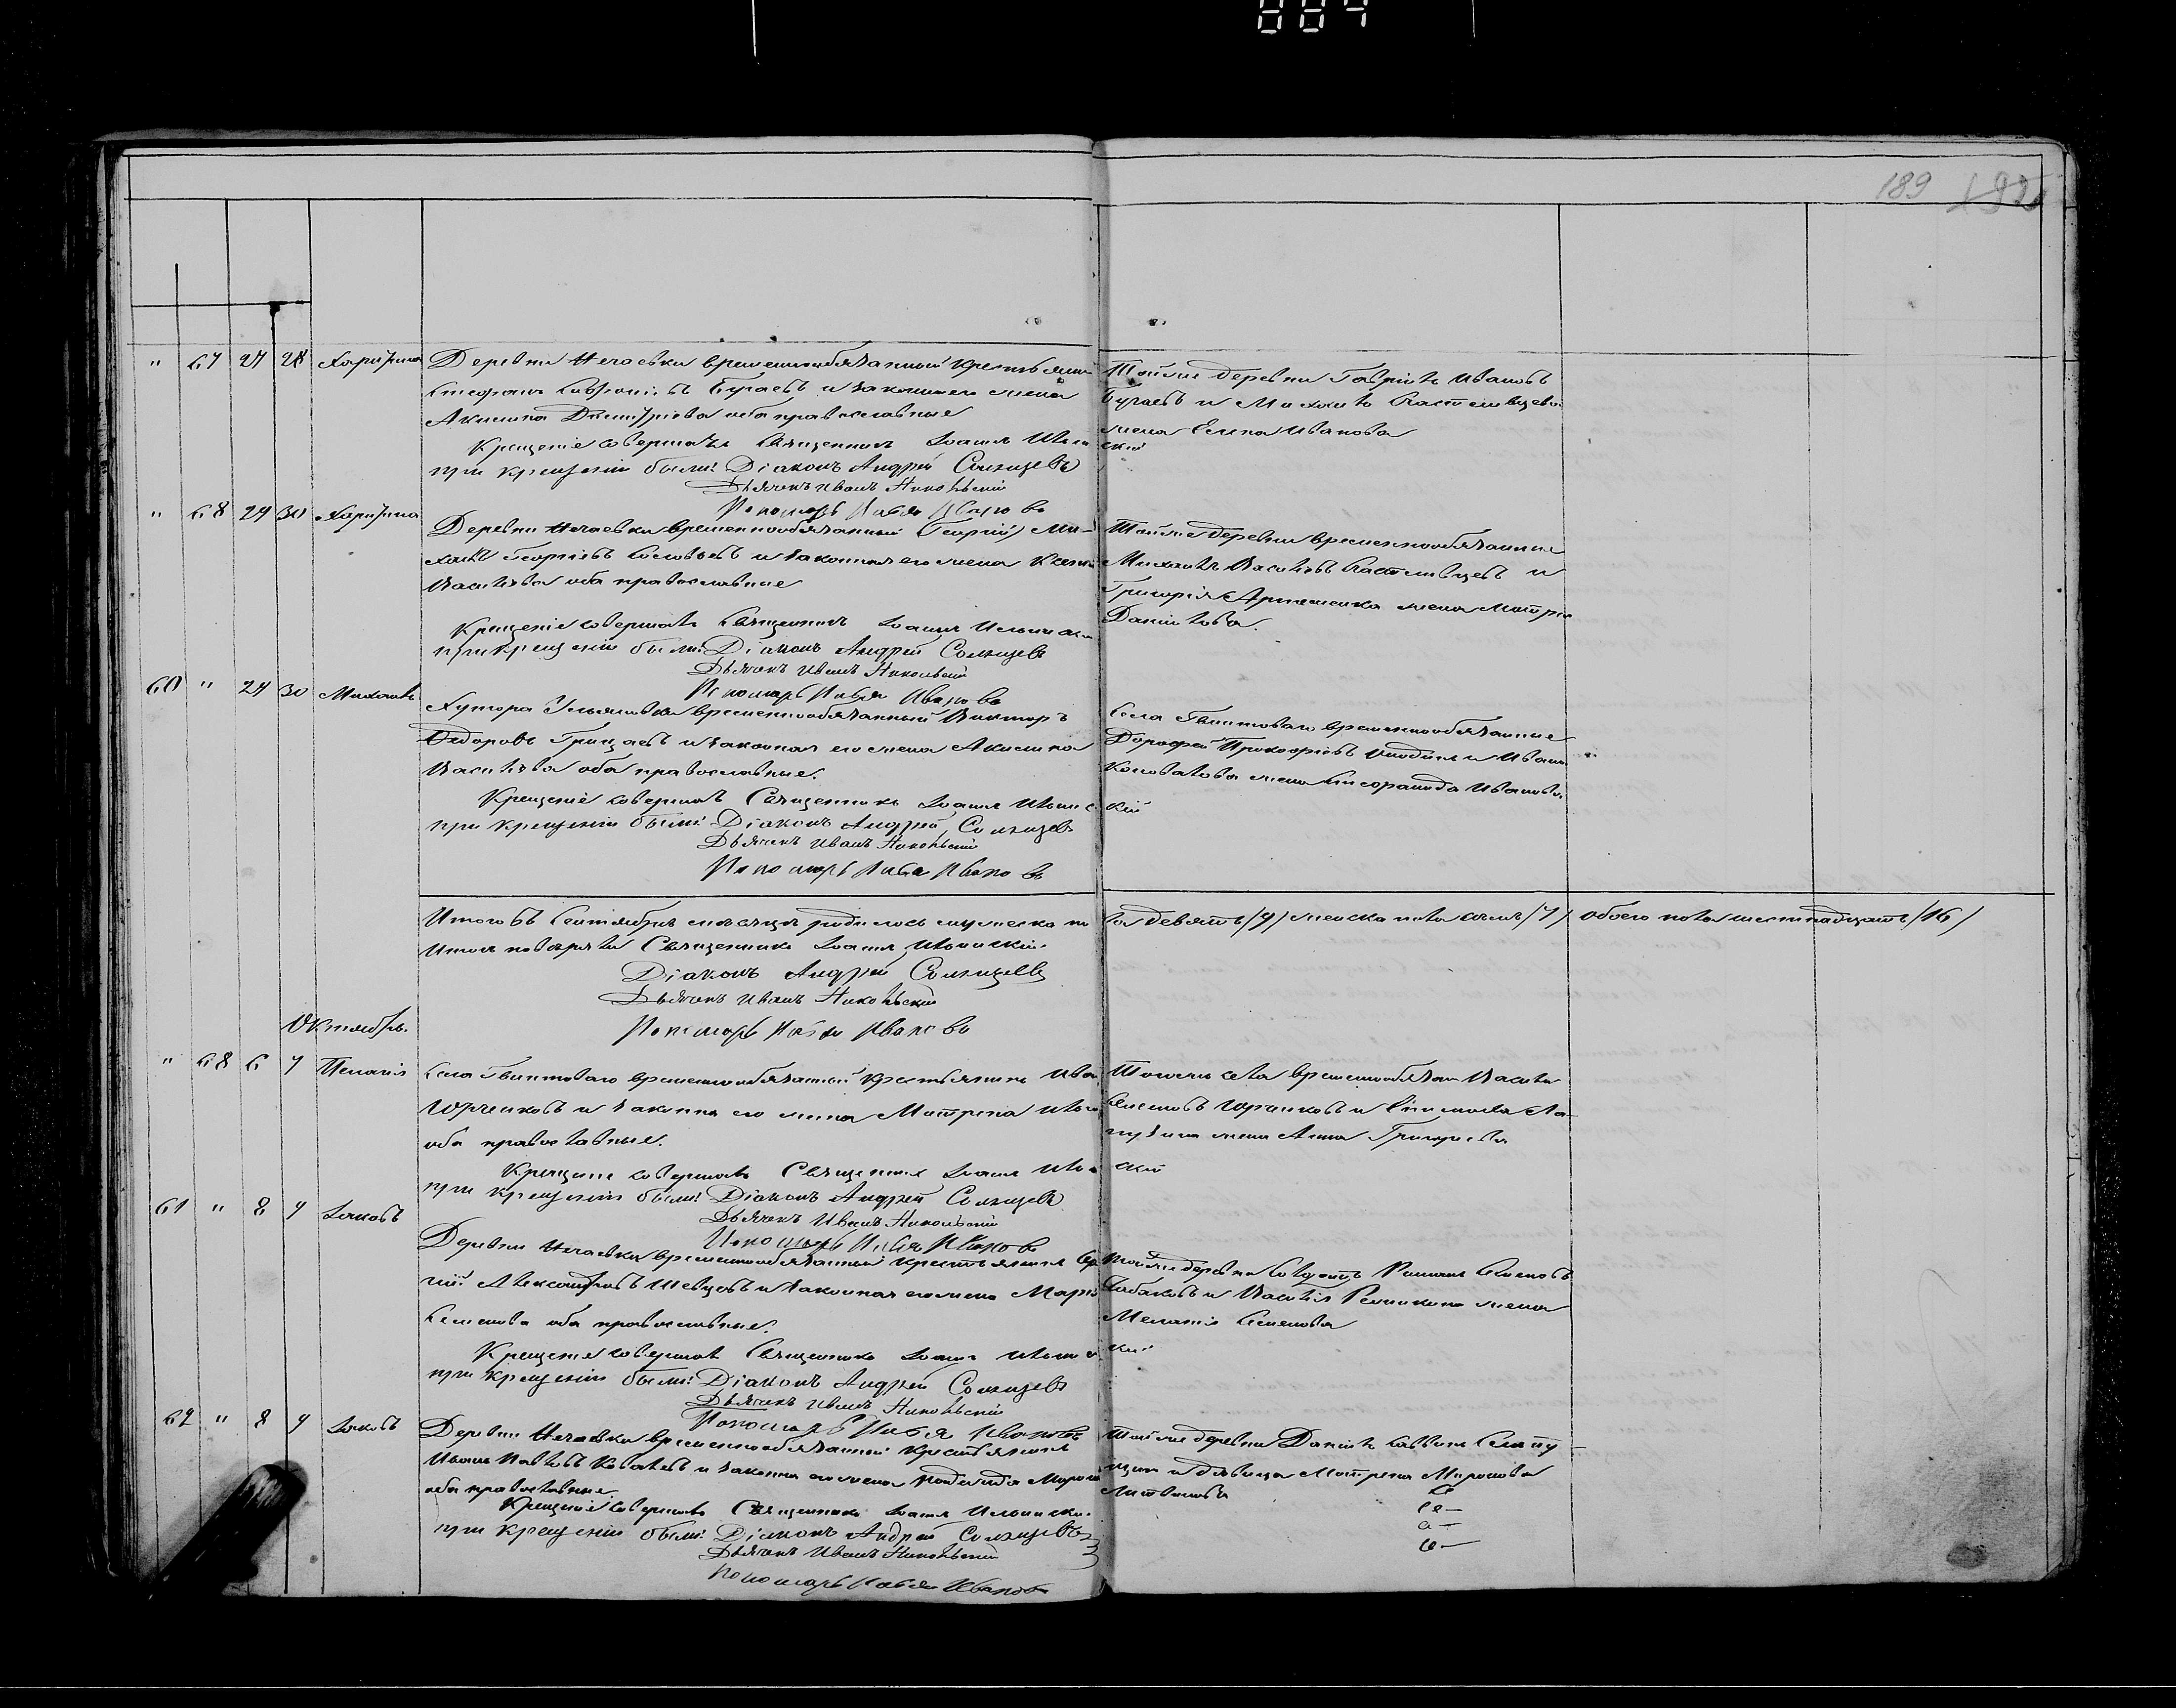 189 192
" 67 27 28 Харитина
Деревни Нечаевки временнообязанный крестьянинъ
Стефанъ Софроніевъ Бугаевъ и законная его жена
Акилина Димитріева оба православные
Крещеніе совершалъ Священникъ Іоаннъ Ильинскій
при крещеніи были: Діаконъ Андрей Солнцевъ
Дьячекъ Иванъ Никольскій
Пономарь Иванов
Тойже деревни Гавріилъ Ивановъ
Бугаевъ и Михаила
жена Елена Иванова
" 68 29 30 Харитина
Деревни Нечаевки временнообязанный (Георгій) Ми-
хаилъ Георгіевъ Соловьевъ и законная его жена Ксенія
Васильева оба православные
Крещеніе совершалъ Священникъ Іоаннъ Ильинскій
при крещеніи были: Діаконъ Андрей Солнцевъ
Дьячекъ Иванъ Никольскій
Пономарь Иванов
Тойже деревни временнообязанные
Михаилъ Васильевъ и
Григорія Артеменка жена Матрона
Данилова.
60 " 29 30 Михаилъ
Хутора Ульяновки временнообязанный Викторъ
Ѳедоровъ Грицаевъ и законная его жена Акилина
Васильева оба православные.
Крещеніе совершалъ Священникъ Іоаннъ Ильинскій
при крещеніи были: Діаконъ Андрей Солнцевъ
Дьячекъ Иванъ Никольскій
Пономарь Иванов
Села Гвинтоваго временнообязанные
Дорофей Прокофіевъ и Ивана
Коновалова жена Иванова.
Итого въ Сентябрѣ мѣсяцѣ родилось мужеска по
ла девять /9/ женска пола семь /7/ обоего пола шестнадцать /16/
Итогъ повѣряли Священникъ Іоаннъ Ильинскій.
Діаконъ Андрей Солнцевъ
Дьячекъ Иванъ Никольскій
Пономарь Иванов
Октябрь.
" 68 6 7 Пелагія
Села Гвинтоваго временнообязанный крестьянинъ Иванъ
Юрченковъ и законная его жена Матрена
оба православные.
Крещеніе совершалъ Священникъ Іоаннъ Ильинскій
при крещеніи были: Діаконъ Андрей Солнцевъ
Дьячекъ Иванъ Никольскій
Пономарь Иванов
Тогоже села временнообязан Василій
Семеновъ Юрченковъ и
жена Анна Григорьева
61 " 8 9 Іаковъ
Деревни Нечаевки временнообязанный крестьянинъ Сер
гій Александровъ Шевцовъ и законная его жена Марія
Семенова оба православные.
Крещеніе совершалъ Священникъ Іоаннъ Ильинскій
при крещеніи были: Діаконъ Андрей Солнцевъ
Дьячекъ Иванъ Никольскій
Пономарь Иванов
Тойже деревни Романъ Семеновъ
и Василія жена
Меланія Семенова
62 " 8 9 Іаковъ
Деревни Нечаевки временнообязанный крестьянинъ
Иванъ Павловъ Ковалевъ и законная его жена Миронова
оба православные.
Крещеніе совершалъ Священникъ Іоаннъ Ильинскій
при крещеніи были: Діаконъ Андрей Солнцевъ
Дьячекъ Иванъ Никольскій
Пономарь Иванов
Тойже деревни Даніилъ Саввинъ
и дѣвица Матрена Миронова
Литвинова